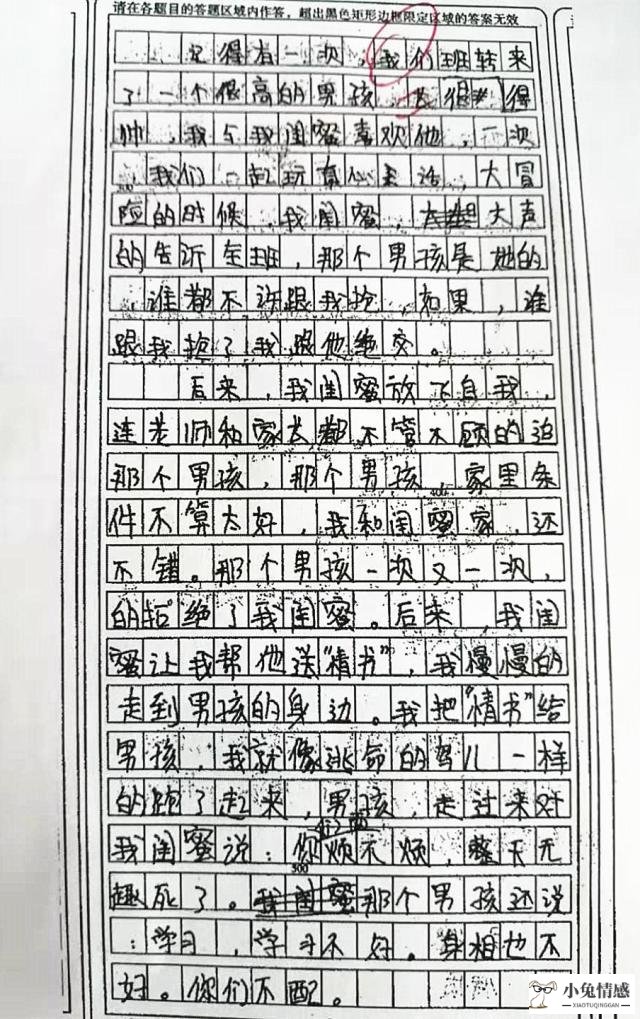 请在各题目的答题区域内作答，超出黑色矩形边框限定区域的答案无效
记得有一次，我们班转来
了一个很高的男孩，长很得
帅，我与我闺蜜喜欢他，一次
，我们一起玩真心话，大冒
险的时候，我闺蜜，大声
的告诉全班，那个男孩是她的
，谁都不许跟我抢，如果，谁
跟我抢了我跟他绝交。
后来，我闺蜜放飞自我，
连老师和家长都不管不顾的追
那个男孩，那个男孩，家里条
400
件不算太好，我和闺蜜家，还
不错。那个男孩一次又一次，
的拒绝了我闺蜜。后来，我闺
蜜让我帮他送“情书”，我慢慢的
走到男孩的身边。我把“情书”给
男孩，我就像逃命的驾儿一样
的跑了起来，男孩，走过来对
我闺蜜说：你烦不烦，整天无
500
趣死了。我闺蜜那个男孩还说
：学习，学习不好。身相也不
好。你们不配。
小兔情感
XIAOTUQINGGAN